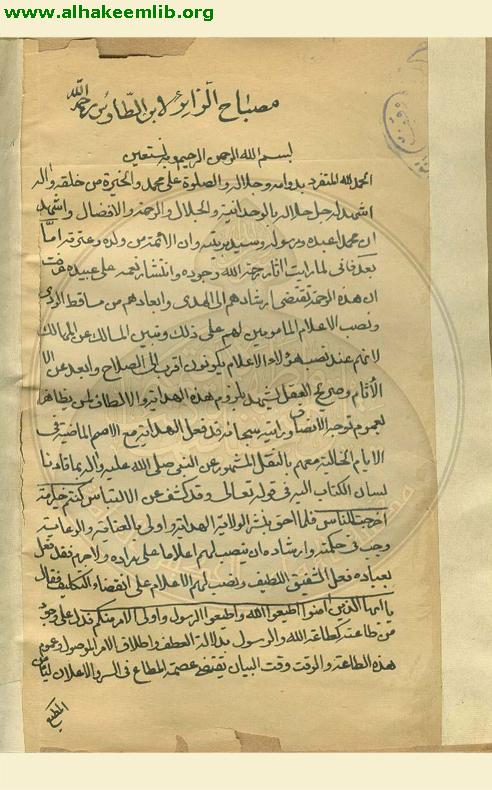 www.alhakeemlib.org
مصباح الزائر لابن الطاوس رحمه الله
بسم الله الرحمن الرحيم وبه نستعين
الحمد لله المتفرد بدوامه وجلاله والصلوة على محمد والخيرة من خلقه واله
اشهد له جل جلاله بالوحدانية والجلال والرحمة والافضال واشهد
ان محمدا عبده ورسوله وسيد بريته وان الائمة من ولده وعترته اما
بعد فانى لما رايت اثار رحمة الله وجوده وانتشار نعمه على عبيده
ان هذه الرحمة تقتضى ارشادهم الى الهدى وابعادهم من مساقط الردى
ونصب الاعلام المامونين لهم على ذلك وتبين المسالك عن المهالك
لانهم عند نصب هؤلاء الاعلام يكونون اقرب الى الصلاح وابعد عن
الآثام وصريح العقل يشهد بلزوم هذه الهداية والالطاف لمن
لعموم توجه الانصاف ورايته سبحانه قد فعل الهداية مع الامم الماضية فى
الايام الخالية معهم بالنقل المشهور عن النبى صلى الله عليه واله
لسان الكتاب اليه فى قوله تعالى وقد كشف عن الالتباس كنتم خير امة
اخرجت للناس فلما الحق بشر الولاية الهداية واولى بالعناية والرعاية
وجب فى حكمته وارشاده ان ينصب لهم اعلاما على نداده ولاجرم فقد فعل
بعباده فعل الشفيق اللطيف ونصب لهم الاعلام على انقضاء التكليف فقال
يا ايها الذين امنوا اطيعوا الله واطيعوا الرسول واولى الامر منكم فدل على وجود
من طاعته كطاعة الله والرسول بدلالة العطف واطلاق الامر الموصول وعموم
هذه الطاعة والوقت وقت البيان يقتضى عصمة المطاع فى السر والاعلان
المطيع